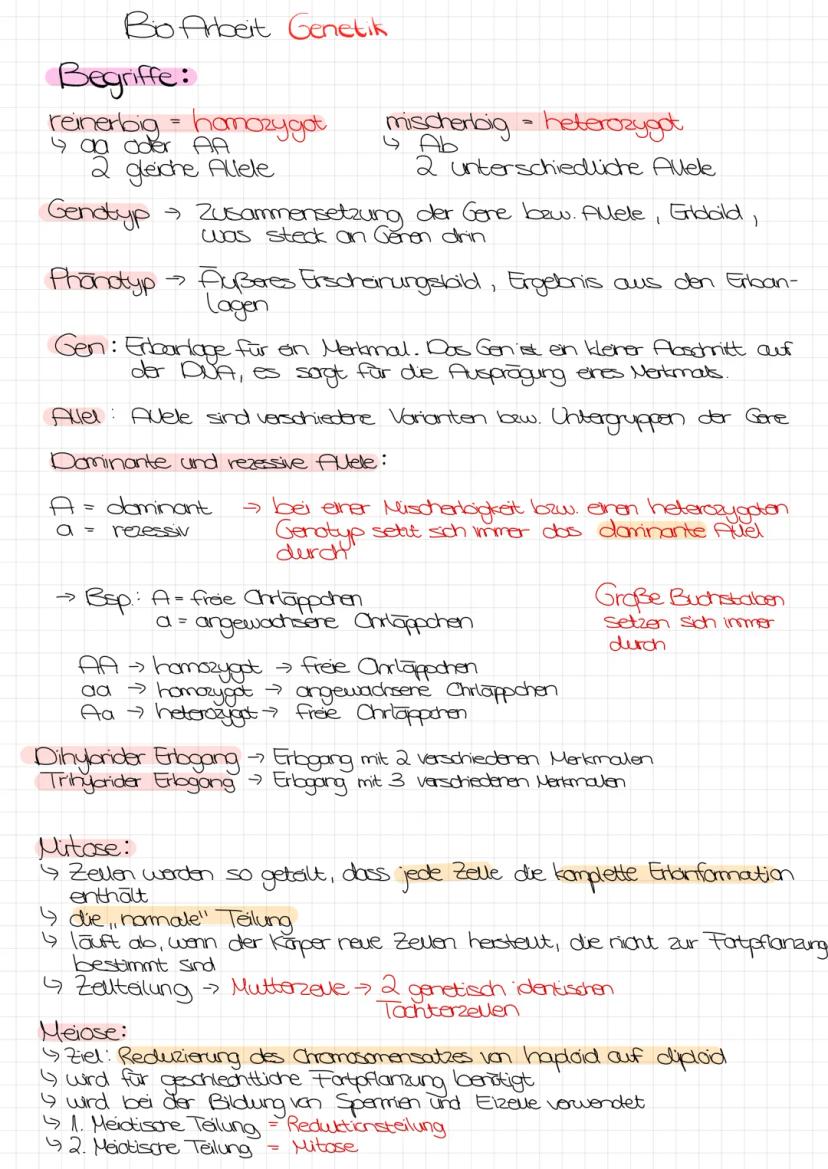 Bio Arbeit Genetik
Begriffe:
reinerbig = homozygot mischerbig = heterozygot
↳ aa oder AA ↳ Ab
2 gleiche Allele 2 unterschiedliche Allele
Genotyp → Zusammensetzung der Gene bzw. Allele, Erbbild,
was steck an Genen drin
Phänotyp → Äußeres Erscheinungsbild, Ergebnis aus den Erban-
lagen
Gen: Erbanlage für ein Merkmal. Das Gen ist ein kleiner Abschnitt auf
der DNA, es sorgt für die Ausprägung eines Merkmals.
Allel: Allele sind verschiedene Varianten bzw. Untergruppen der Gene
Dominante und rezessive Allele:
A = dominant → bei einer Mischerbigkeit bzw. einen heterozygoten
a = rezessiv Genotyp setzt sich immer das dominante Allel
durch
→ Bsp.: A = freie Ohrläppchen Große Buchstaben
a = angewachsene Ohrläppchen setzen sich immer
durch
AA → homozygot → freie Ohrläppchen
aa → homozygot → angewachsene Ohrläppchen
Aa → heterozygot → freie Ohrläppchen
Dihybrider Erbgang → Erbgang mit 2 verschiedenen Merkmalen
Trihybrider Erbgang → Erbgang mit 3 verschiedenen Merkmalen
Mitose:
↳ Zellen werden so geteilt, dass jede Zelle die komplette Erbinformation
enthält
↳ die „normale" Teilung
↳ läuft ab, wenn der Körper neue Zellen herstellt, die nicht zur Fortpflanzung
bestimmt sind
↳ Zellteilung → Mutterzelle → 2 genetisch identischen
Tochterzellen
Meiose:
↳ Ziel: Reduzierung des Chromosomensatzes von haploid auf diploid
↳ wird für geschlechtliche Fortpflanzung benötigt
↳ wird bei der Bildung von Spermien und Eizelle verwendet
↳ 1. Meiotische Teilung = Reduktionsteilung
↳ 2. Meiotische Teilung = Mitose